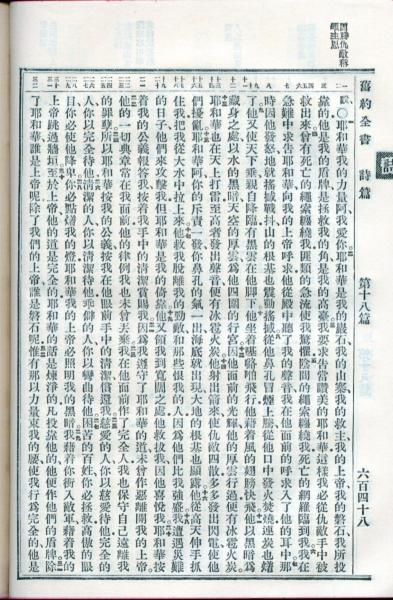 因勝仇敵稱頌主恩
舊約全書 詩篇 第十八篇 六百四十八
〇耶和華我的力量阿我愛你耶和華是我的巖石我的山寨我的救主我的上帝我的磐石我所投
靠的他是我的盾牌是拯救我的角是我的高臺我要求告當讚美的耶和華這樣我必從仇敵手中被
救出來曾有死亡的繩索纏繞我匪類的急流使我驚懼陰間的繩索纏繞我死亡的網羅臨到我我在
急難中求告耶和華向我的上帝呼求他從殿中聽了我的聲音我在他面前的呼求入了他的耳中那
時因他發怒地就搖撼戰抖山的根基也震動搖撼從他鼻孔冒煙上騰從他口中發火焚燒連炭也
了他又使天下垂親自降臨有黑雲在他腳下他坐着基路伯飛行他藉着風的翅膀快飛他以黑暗爲
藏身之處以水的黑暗天空的厚雲爲他四圍的行宮因他面前的光輝他的厚雲行過便有冰雹火炭
耶和華也在天上打雷至高者發出聲音便有冰雹火炭他射出箭來使仇敵四散多多發出閃電使他
們擾亂耶和華阿你的斥責一發你鼻孔的氣一出海底就出現大地的根基也顯露他從高天伸手抓
住我把我從大水中拉上來他救我脫離我的勁敵和那些恨我的人因爲他們比我強盛我遭遇災難
的日子他們來攻擊我但耶和華是我的倚靠他又領我到寬闊之處他救拔我因他喜悅我耶和華按
着我的公義報答我按着我手中的清潔賞賜我因爲我遵守了耶和華的道未曾作惡離開我的上帝
他的一切典章常在我面前他的律例我也未曾丟棄我在他面前作了完全人我也保守自己遠離我
的罪孽所以耶和華按我的公義按我在他眼前手中的清潔償還我慈愛的人你以慈愛待他完全的
人你以完全待他清潔的人你以清潔待他乖僻的人你以彎曲待他困苦的百姓你必拯救高傲的眼
目你必使他降卑你必點着我的燈耶和華我的上帝必照明我的黑暗我藉着你衝入敵軍藉着我的
上帝跳過牆垣至於上帝他的道是完全的耶和華的話是煉淨的凡投靠他的他便作他們的盾牌除
了耶和華誰是上帝呢除了我們的上帝誰是磐石呢惟有那以力量束我的腰使我行爲完全的他是